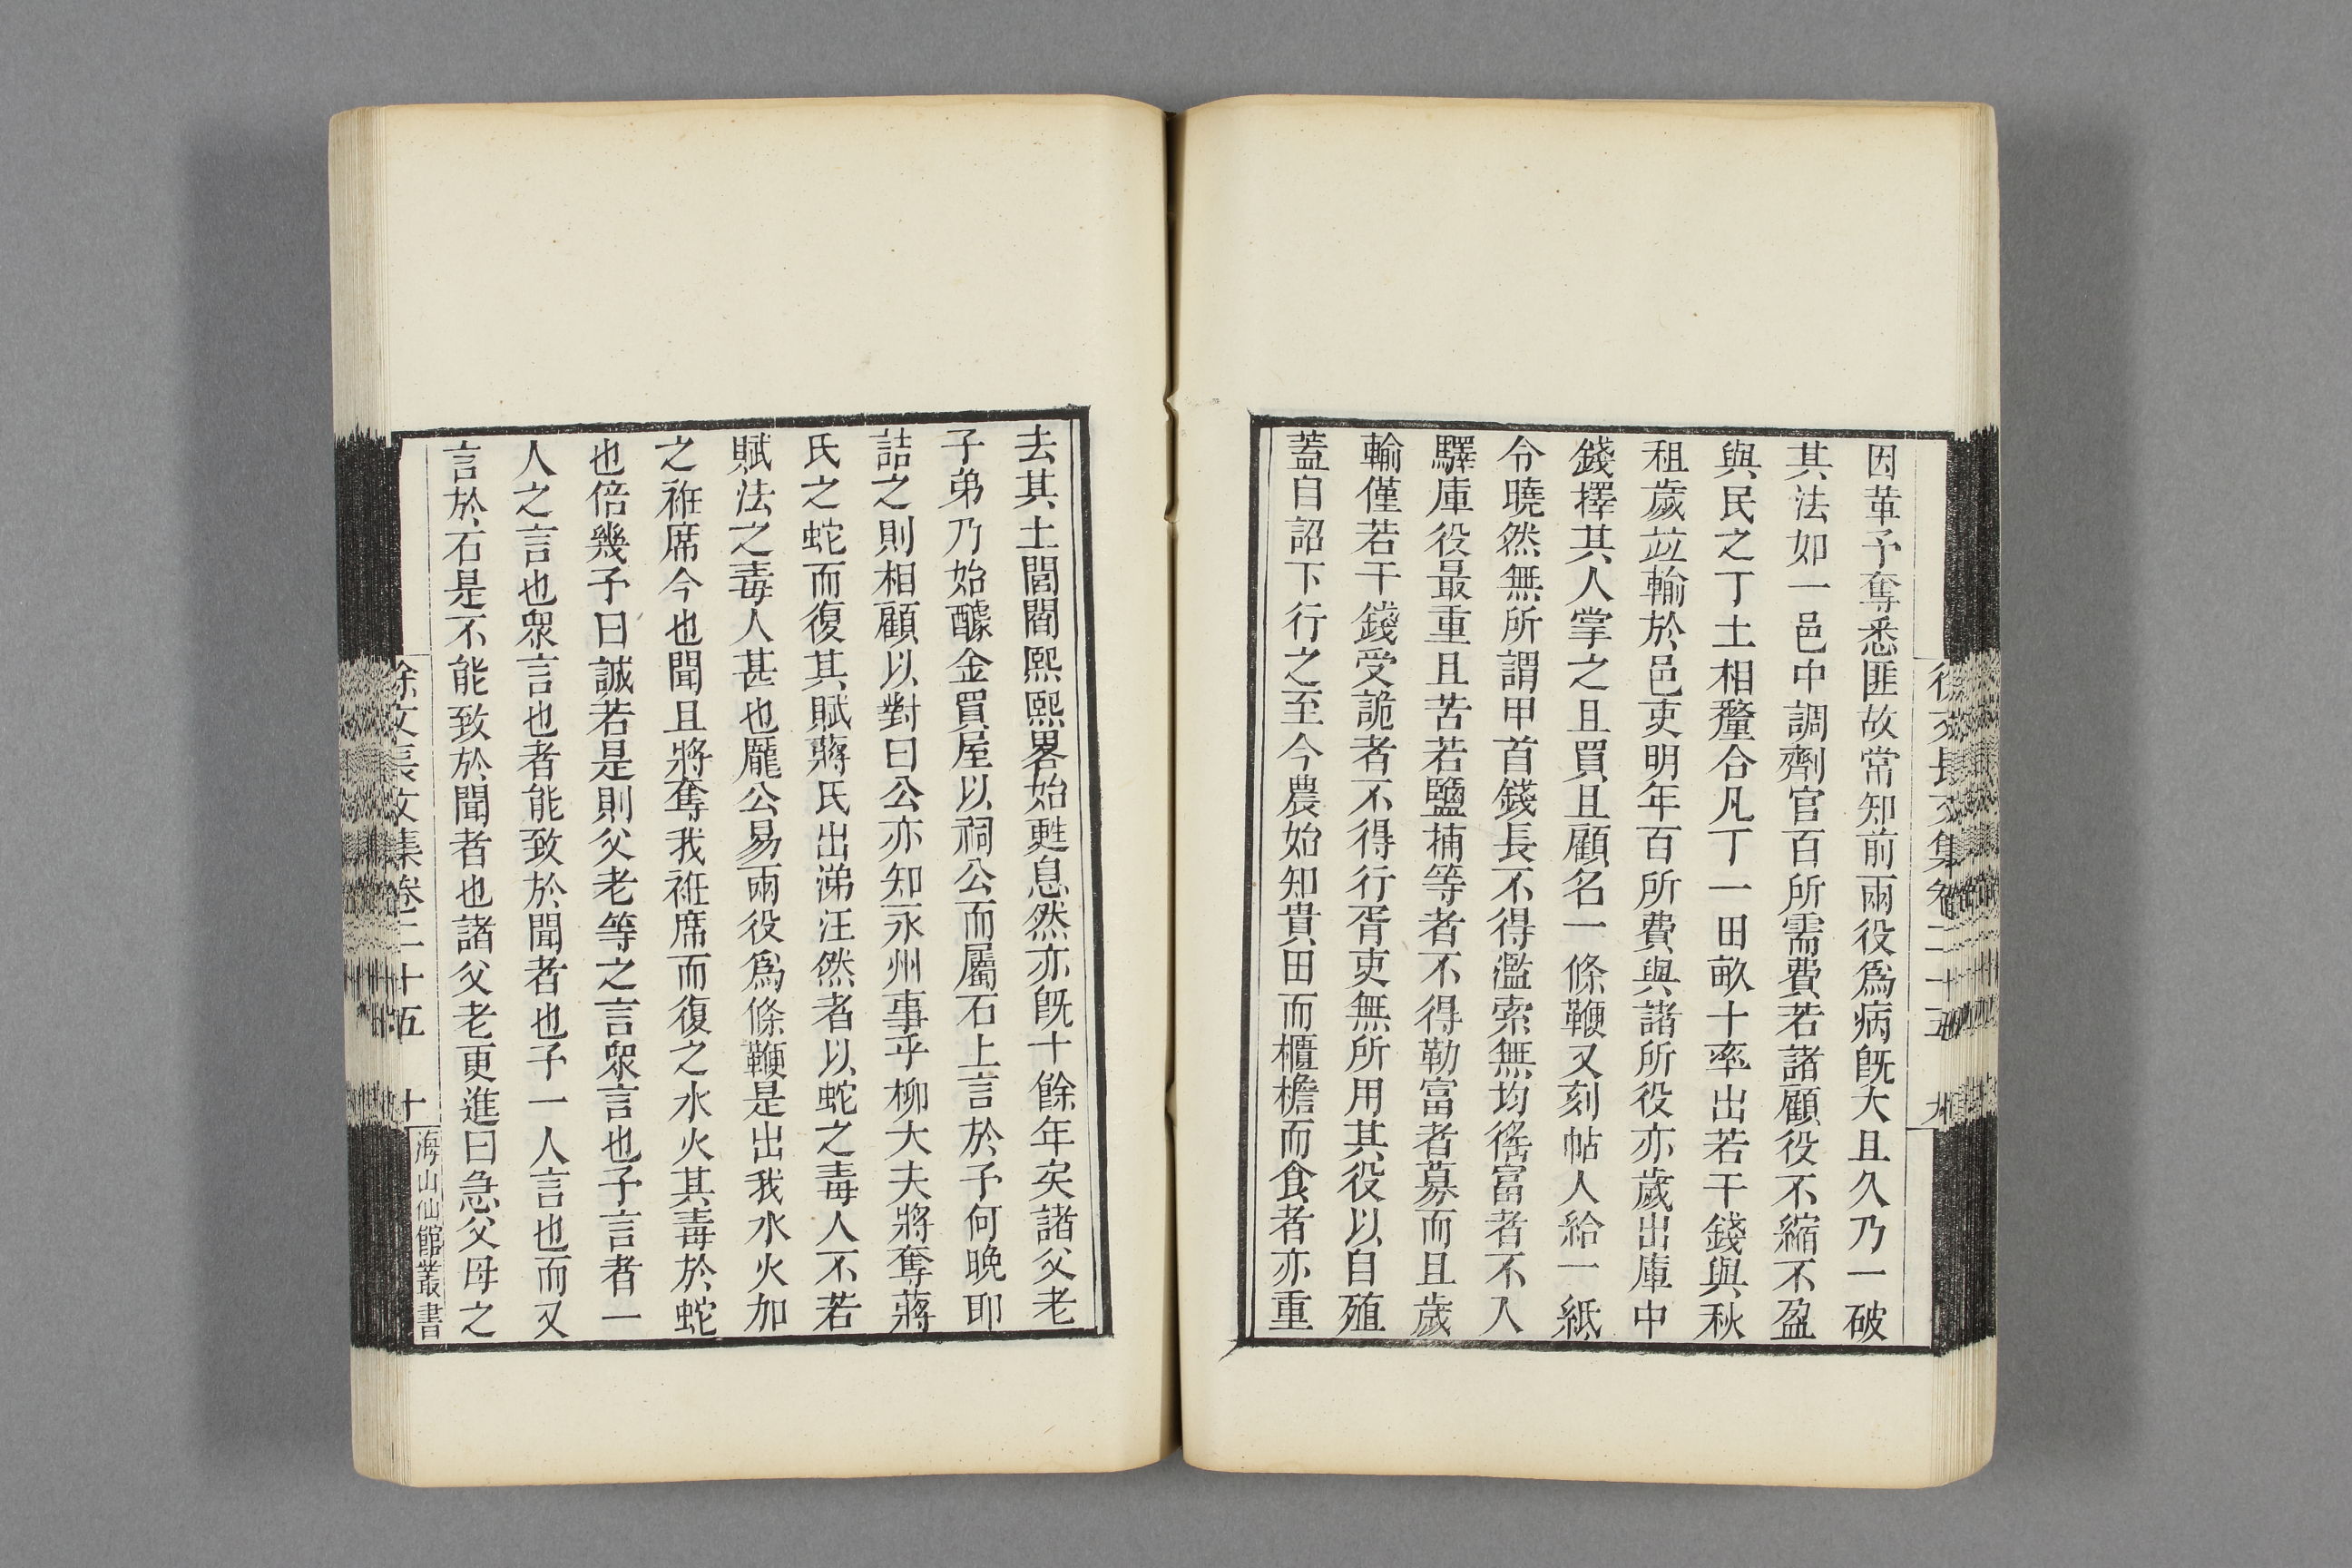 因革予奪悉匪故常知前兩役爲病旣大且久乃一破
其法如一邑中調劑官百所需費若諸顧役不縮不盈
與民之丁土相釐合凡丁一田畝十率出若干錢與秋
租歲竝輸於邑吏明年百所費與諸所役亦歲出庫中
錢擇其人掌之且買且顧名一條鞭又刻帖人給一紙
令曉然無所謂甲首錢長不得濫索無均徭富者不入
驛庫役最重且苦若鹽捕等者不得勒富者募而且歲
輸僅若干錢受詭者不得行胥吏無所用其役以自殖
蓋自詔下行之至今農始知貴田而櫃檐而食者亦重
去其土閭閻熙熙畧始甦息然亦旣十餘年矣諸父老
子弟乃始醵金買屋以祠公而屬石上言於予何晚耶
詰之則相顧以對曰公亦知永州事乎柳大夫將奪蔣
氏之蛇而復其賦蔣氏出涕汪然者以蛇之毒人不若
賦法之毒人甚也龐公易兩役爲條鞭是出我水火加
之袵席今也聞且將奪我袵席而復之水火其毒於蛇
也倍幾予曰誠若是則父老等之言衆言也予言者一
人之言也衆言也者能致於聞者也予一人言也而又
言於石是不能致於聞者也諸父老更進曰急父母之
徐文長文集卷二十五 十
海山仙館叢書